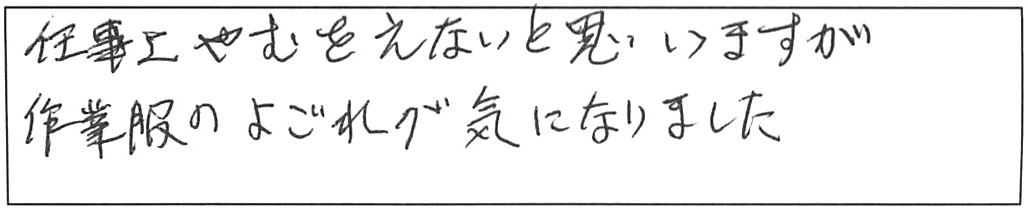 仕事上やむをえないと思いますが
作業服のよごれが気になりました